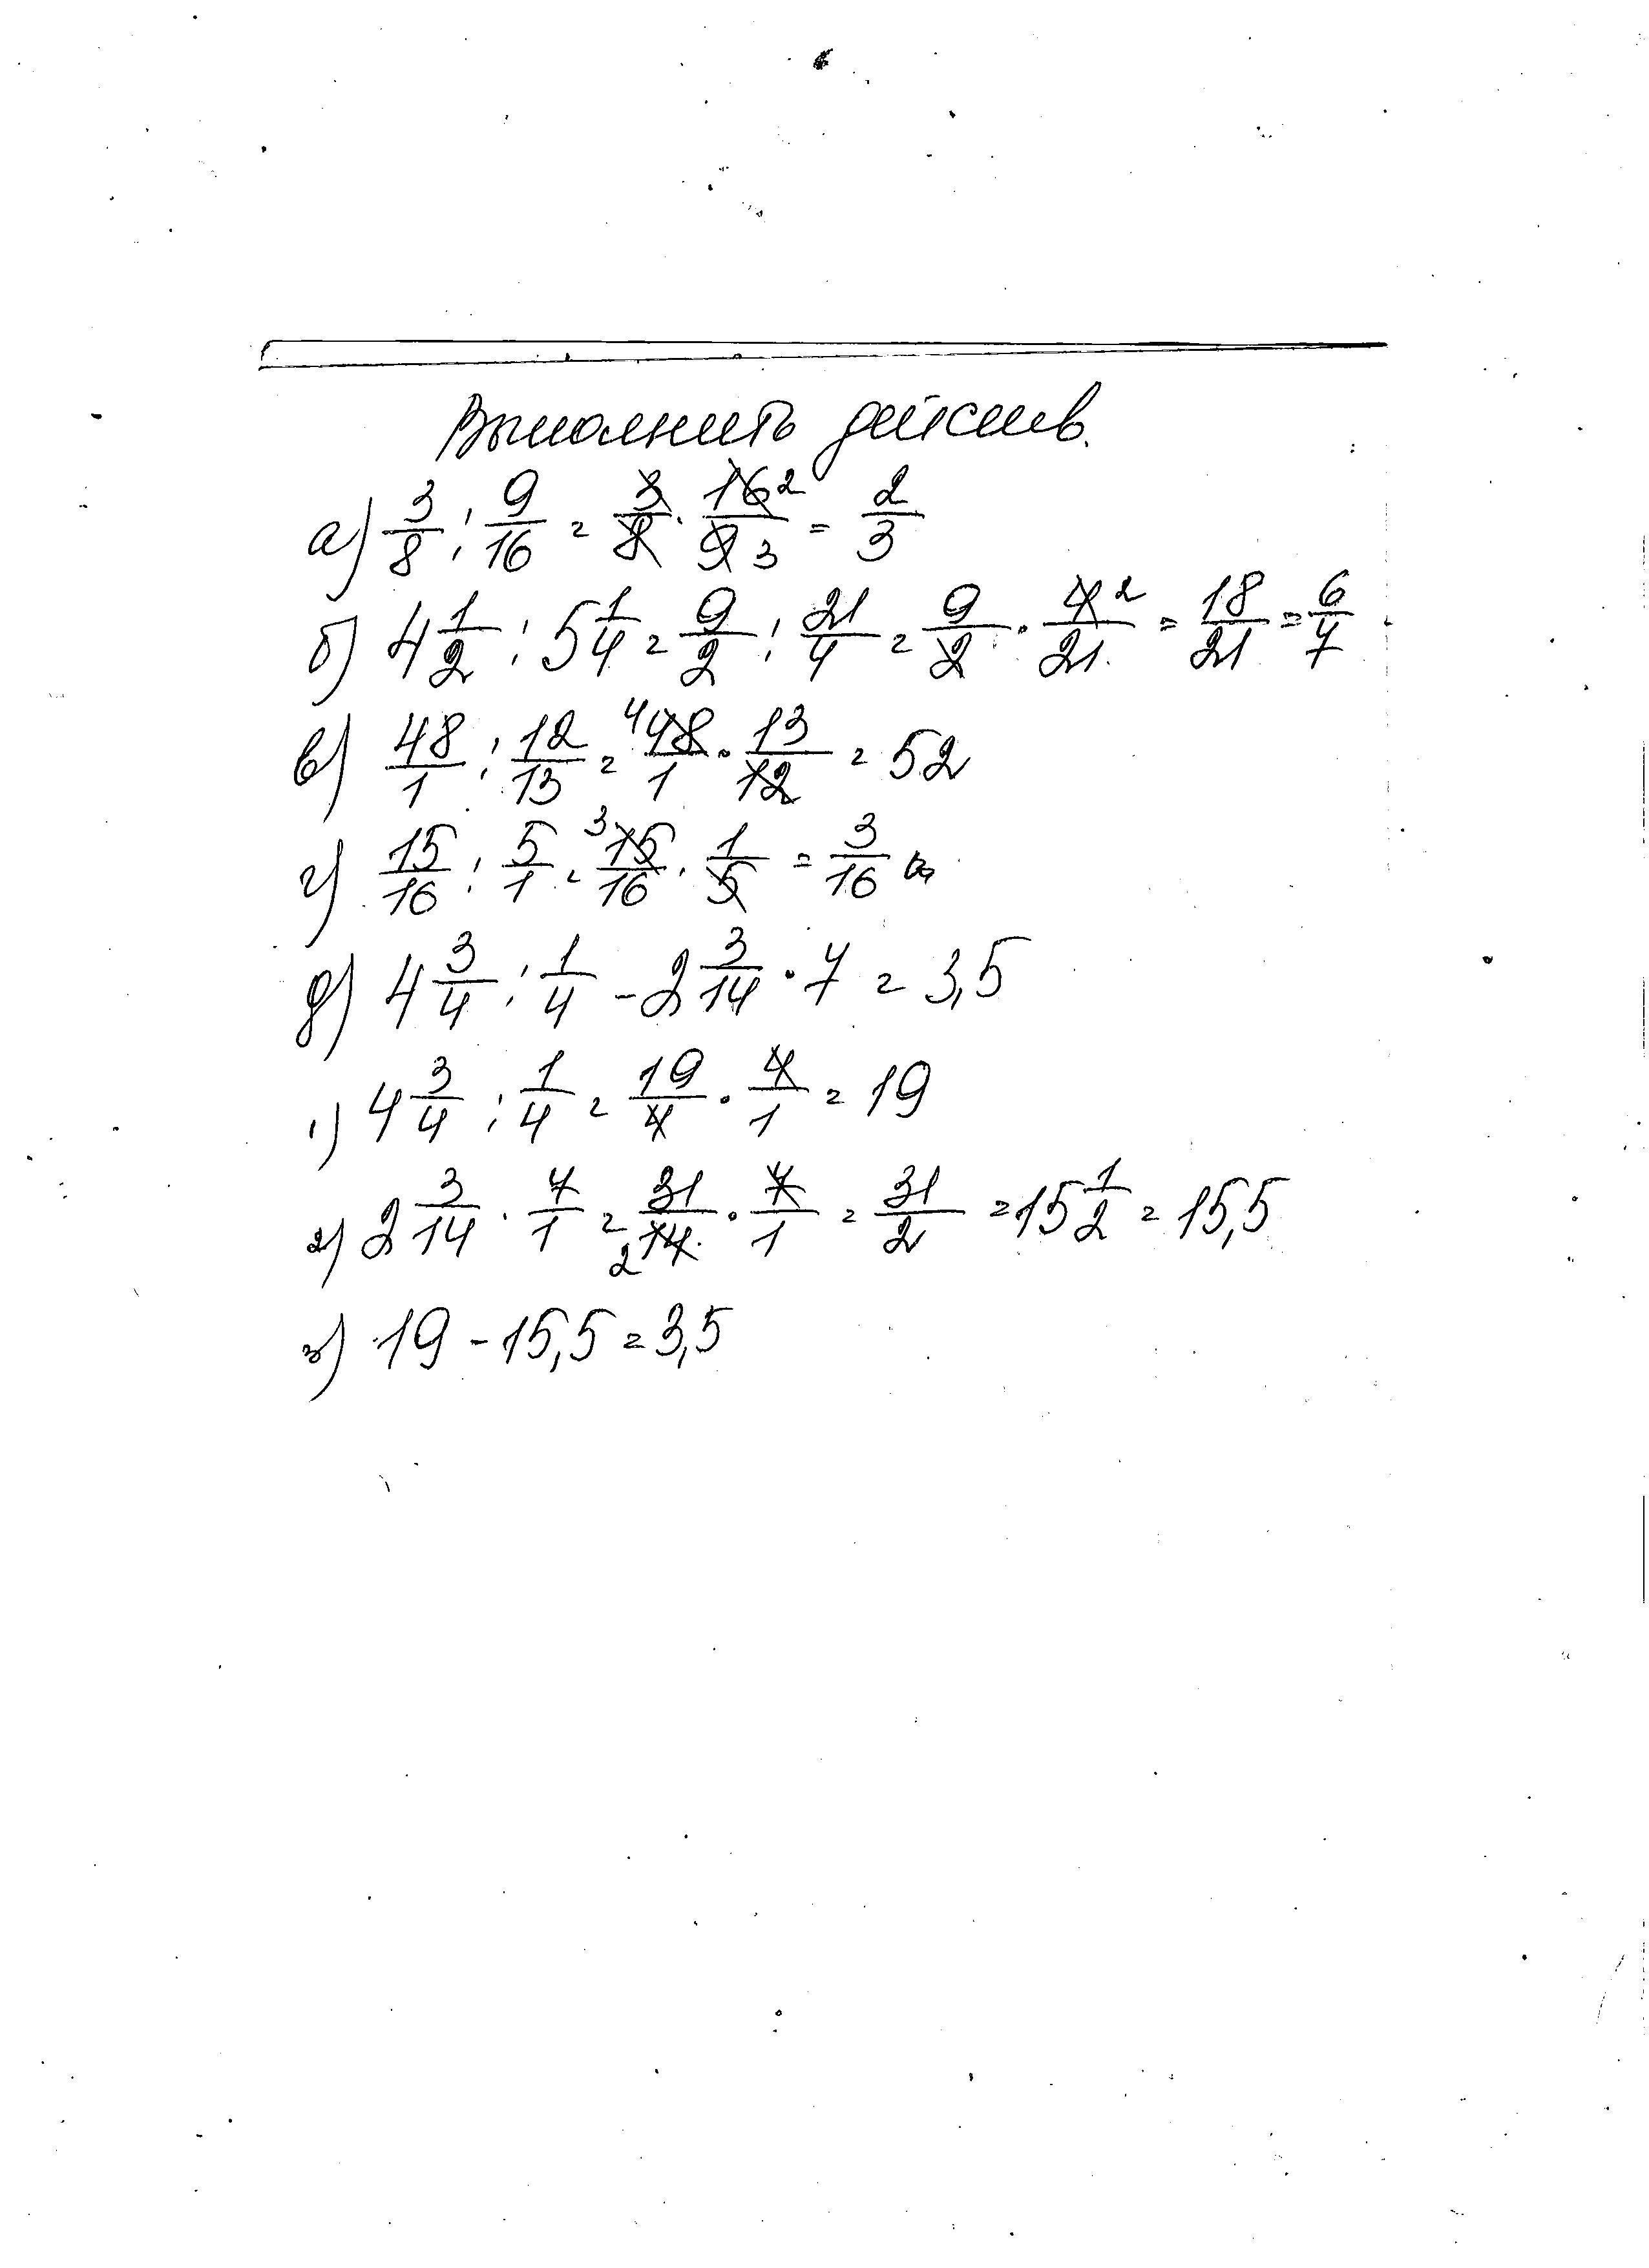 Выполнить действ.
а) 3/8 : 9/16 = 3/8 · 16 2/9 3 = 2/3
б) 4 1/2 : 5 1/4 = 9/2 : 21/4 = 9/2 · 4 2/21 = 18/21 = 6/7
в) 48/1 : 12/13 = 4 48/1 · 13/12 = 52
г) 15/16 : 5/1 = 3 15/16 · 1/5 = 3/16
д) 4 3/4 : 1/4 - 2 3/14 · 7 = 3,5
1) 4 3/4 : 1/4 = 19/4 · 4/1 = 19
2) 2 3/14 · 7/1 = 31/2 14 · 7/1 = 31/2 = 15 1/2 = 15,5
3) 19 - 15,5 = 3,5